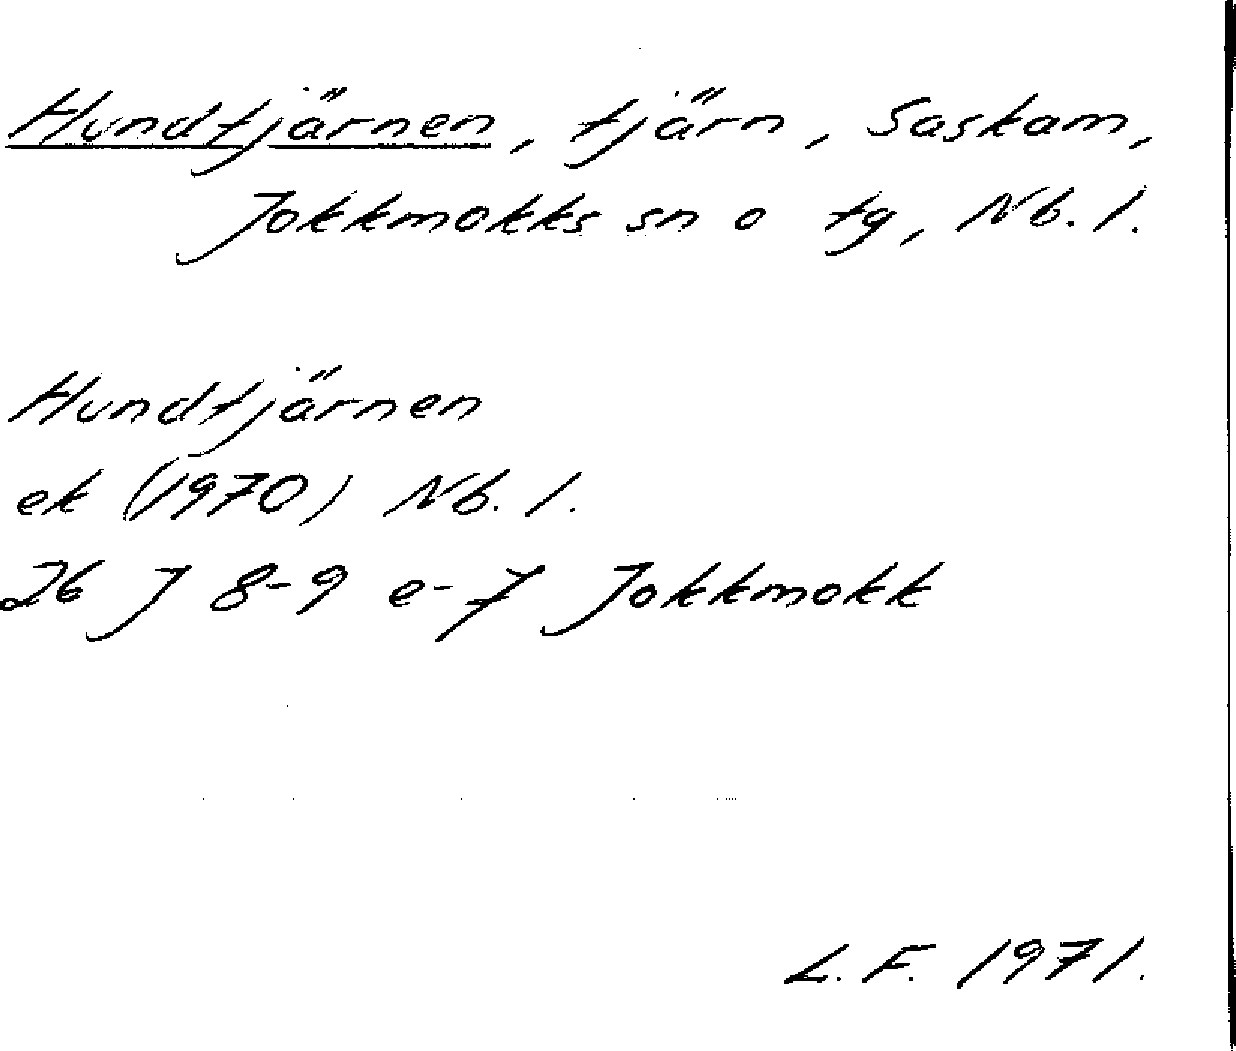 Hundtjärnen, tjärn, Saskam,
Jokkmokks sn o tg, Nb. l.
Hundtjärnen
ek (1970) Nb. l.
26 J 8-9 e-f Jokkmokk
L. F. 1971.